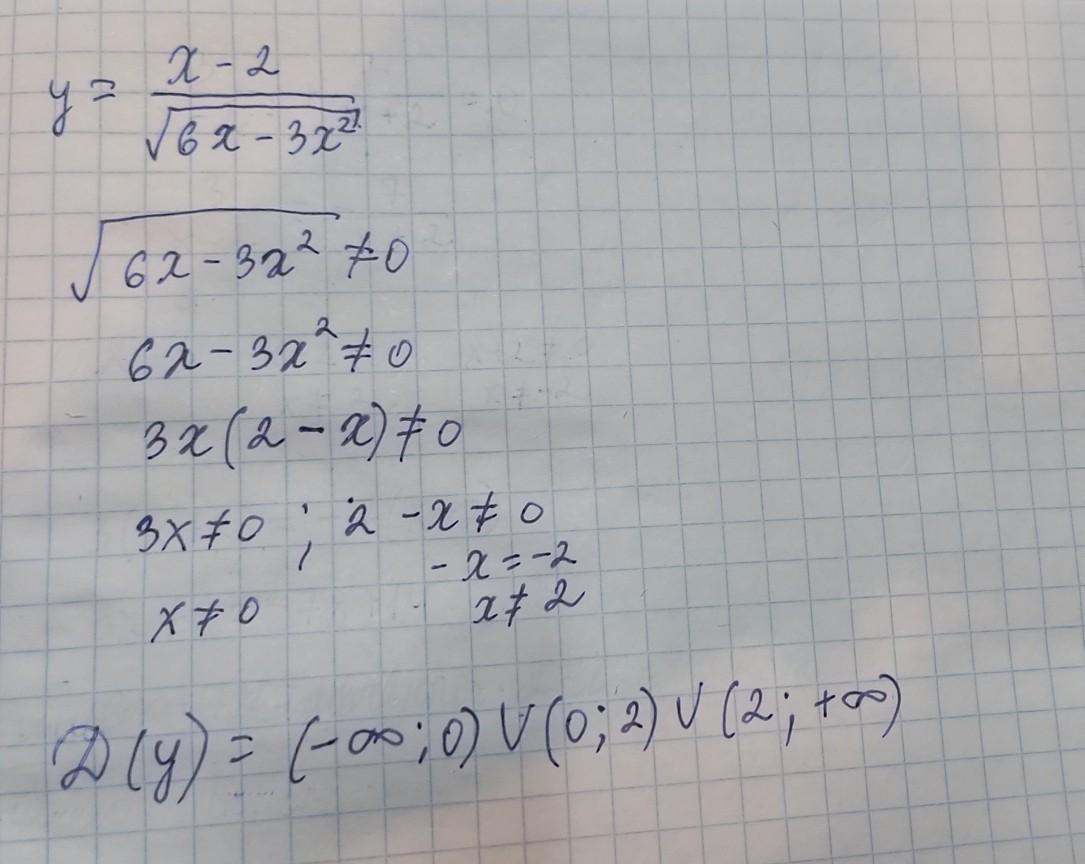 y = x - 2 / √6x - 3x²
√6x - 3x² ≠ 0
6x - 3x² ≠ 0
3x(2 - x) ≠ 0
3x ≠ 0 ; 2 - x ≠ 0
- x = -2
x ≠ 0 x ≠ 2
D(y) = (-∞; 0) ∨ (0; 2) ∨ (2; +∞)